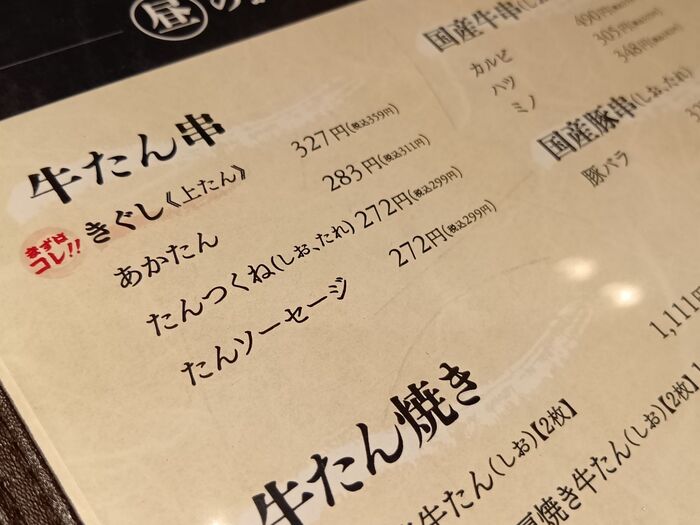 昼の
牛たん串
まずはコレ!!
きぐし《上たん》 327円(税込359円)
あかたん 283円(税込311円)
たんつくね(しお、たれ) 272円(税込299円)
たんソーセージ 272円(税込299円)
国産牛串
カルビ
ハツ 305円
ミノ 348円
国産豚串(しお、たれ)
豚バラ
牛たん焼き
1,111円
牛たん(しお)【2枚】
焼き牛たん(しお)【2枚】